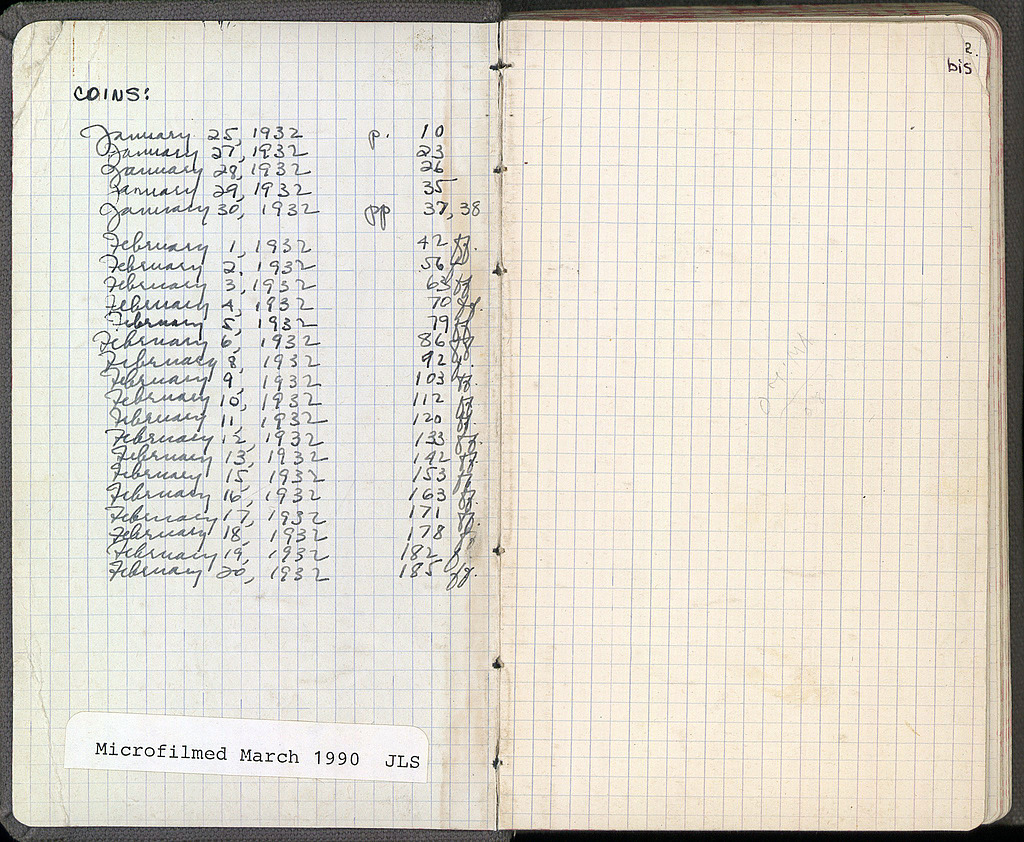 COINS:
January 25, 1932 p. 10
January 27, 1932 23
January 28, 1932 26
January 29, 1932 35
January 30, 1932 pp 37, 38
February 1, 1932 42 ff.
February 2, 1932 56 f.
February 3, 1932 63 ff
February 4, 1932 70 ff.
February 5, 1932 79 ff
February 6, 1932 86 ff
February 8, 1932 92 f.
February 9, 1932 103 ff.
February 10, 1932 112 ff
February 11, 1932 120 ff.
February 12, 1932 133 ff.
February 13, 1932 142 ff.
February 15, 1932 153 ff
February 16, 1932 163 ff
February 17, 1932 171 ff.
February 18, 1932 178 f
February 19, 1932 182 f.
February 20, 1932 185 ff.
Microfilmed March 1990 JLS
2.
bis